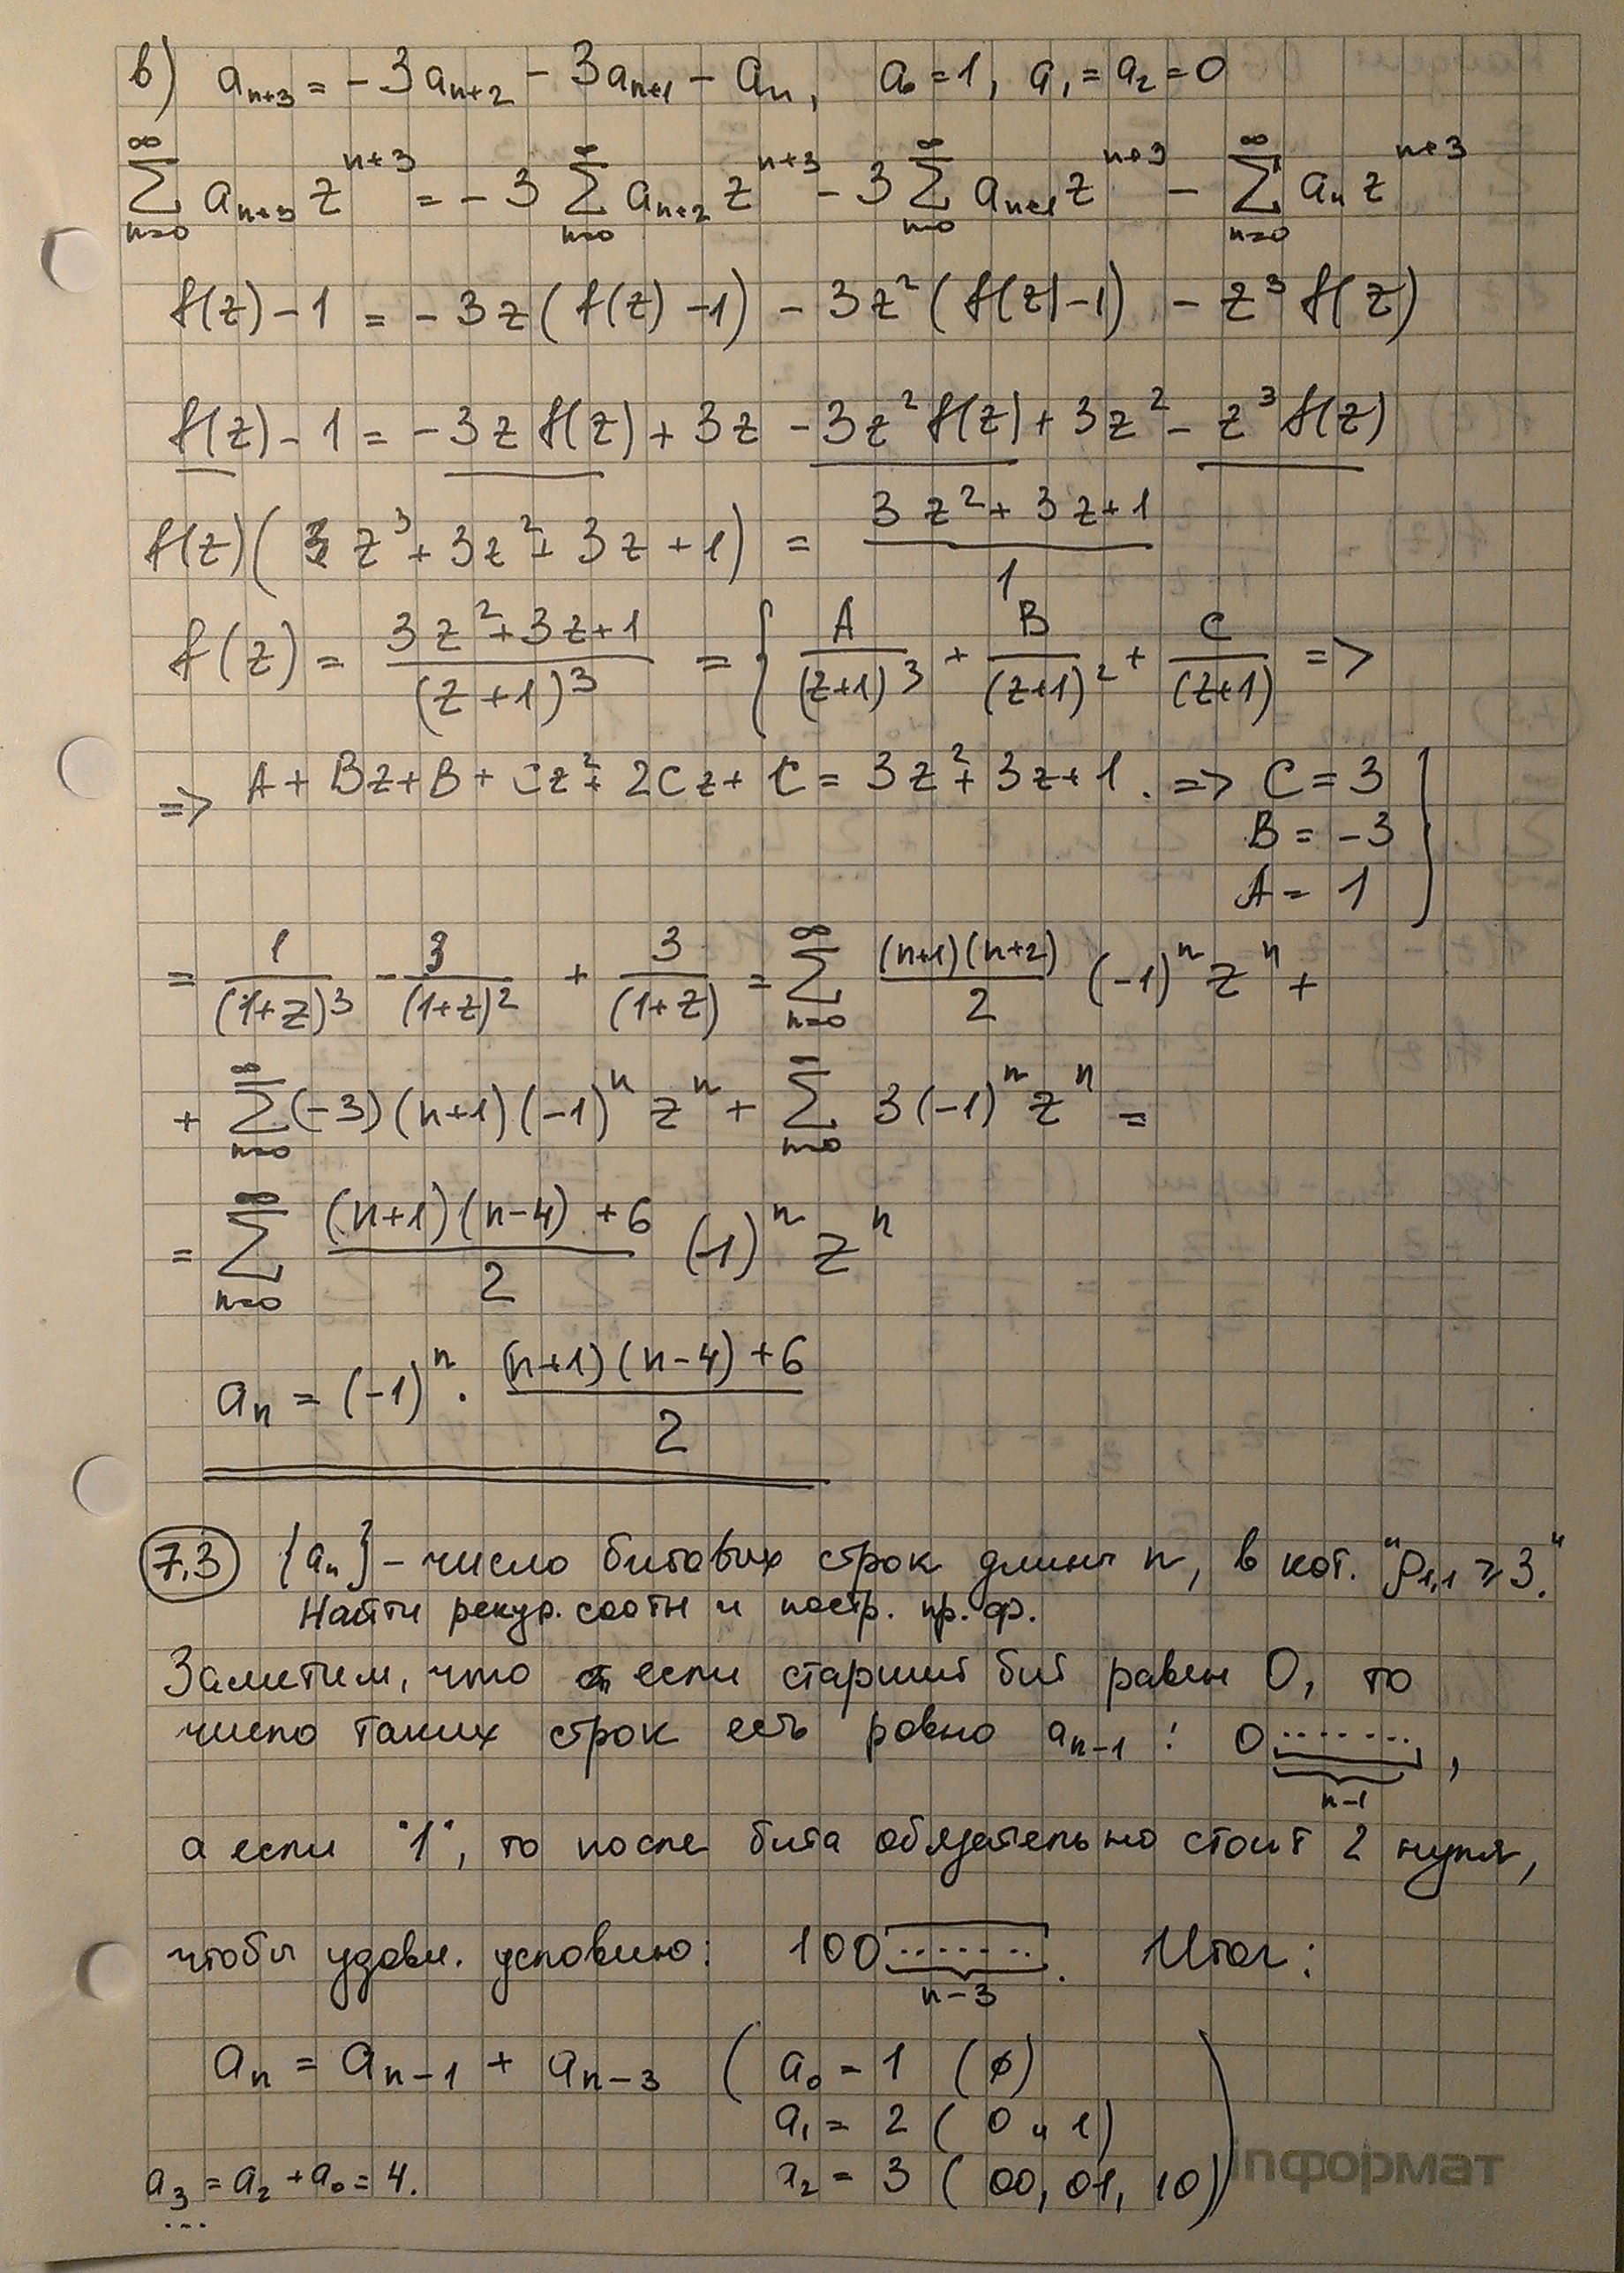 в) aₙ₊₃ = -3aₙ₊₂ - 3aₙ₊₁ - aₙ, a₀ = 1, a₁ = a₂ = 0
∑_{n=0}^{∞} aₙ₊₃ z^{n+3} = -3 ∑_{n=0}^{∞} aₙ₊₂ z^{n+3} - 3 ∑_{n=0}^{∞} aₙ₊₁ z^{n+3} - ∑_{n=0}^{∞} aₙ z^{n+3}
f(z) - 1 = -3z(f(z) - 1) - 3z²(f(z) - 1) - z³ f(z)
f(z) - 1 = -3z f(z) + 3z - 3z² f(z) + 3z² - z³ f(z)
f(z)( z³ + 3z² + 3z + 1) = (3z² + 3z + 1)/1
f(z) = (3z² + 3z + 1)/(z+1)³ = { A/(z+1)³ + B/(z+1)² + C/(z+1) =>
=> A + Bz + B + Cz² + 2Cz + C = 3z² + 3z + 1. => C = 3
B = -3
A = 1 }
= 1/(1+z)³ - 3/(1+z)² + 3/(1+z) = ∑_{n=0}^{∞} (n+1)(n+2)/2 (-1)ⁿ zⁿ +
+ ∑_{n=0}^{∞} (-3)(n+1)(-1)ⁿ zⁿ + ∑_{n=0}^{∞} 3(-1)ⁿ zⁿ =
= ∑_{n=0}^{∞} ((n+1)(n-4) + 6)/2 (-1)ⁿ zⁿ
aₙ = (-1)ⁿ · ((n+1)(n-4) + 6)/2
7.3 {aₙ} - число битовых строк длины n, в кот. "ρ₁,₁ ≥ 3."
Найти рекур. соотн и постр. пр. ф.
Заметим, что если старший бит равен 0, то
число таких строк есть ровно aₙ₋₁ : 0[.......], n-1
а если "1", то после бита обязательно стоит 2 нуля,
чтобы удовл. условию: 100[.......]. n-3 Итог:
aₙ = aₙ₋₁ + aₙ₋₃ ( a₀ = 1 (ø)
a₁ = 2 ( 0 и 1)
a₃ = a₂ + a₀ = 4. a₂ = 3 ( 00, 01, 10) )
...
inформат